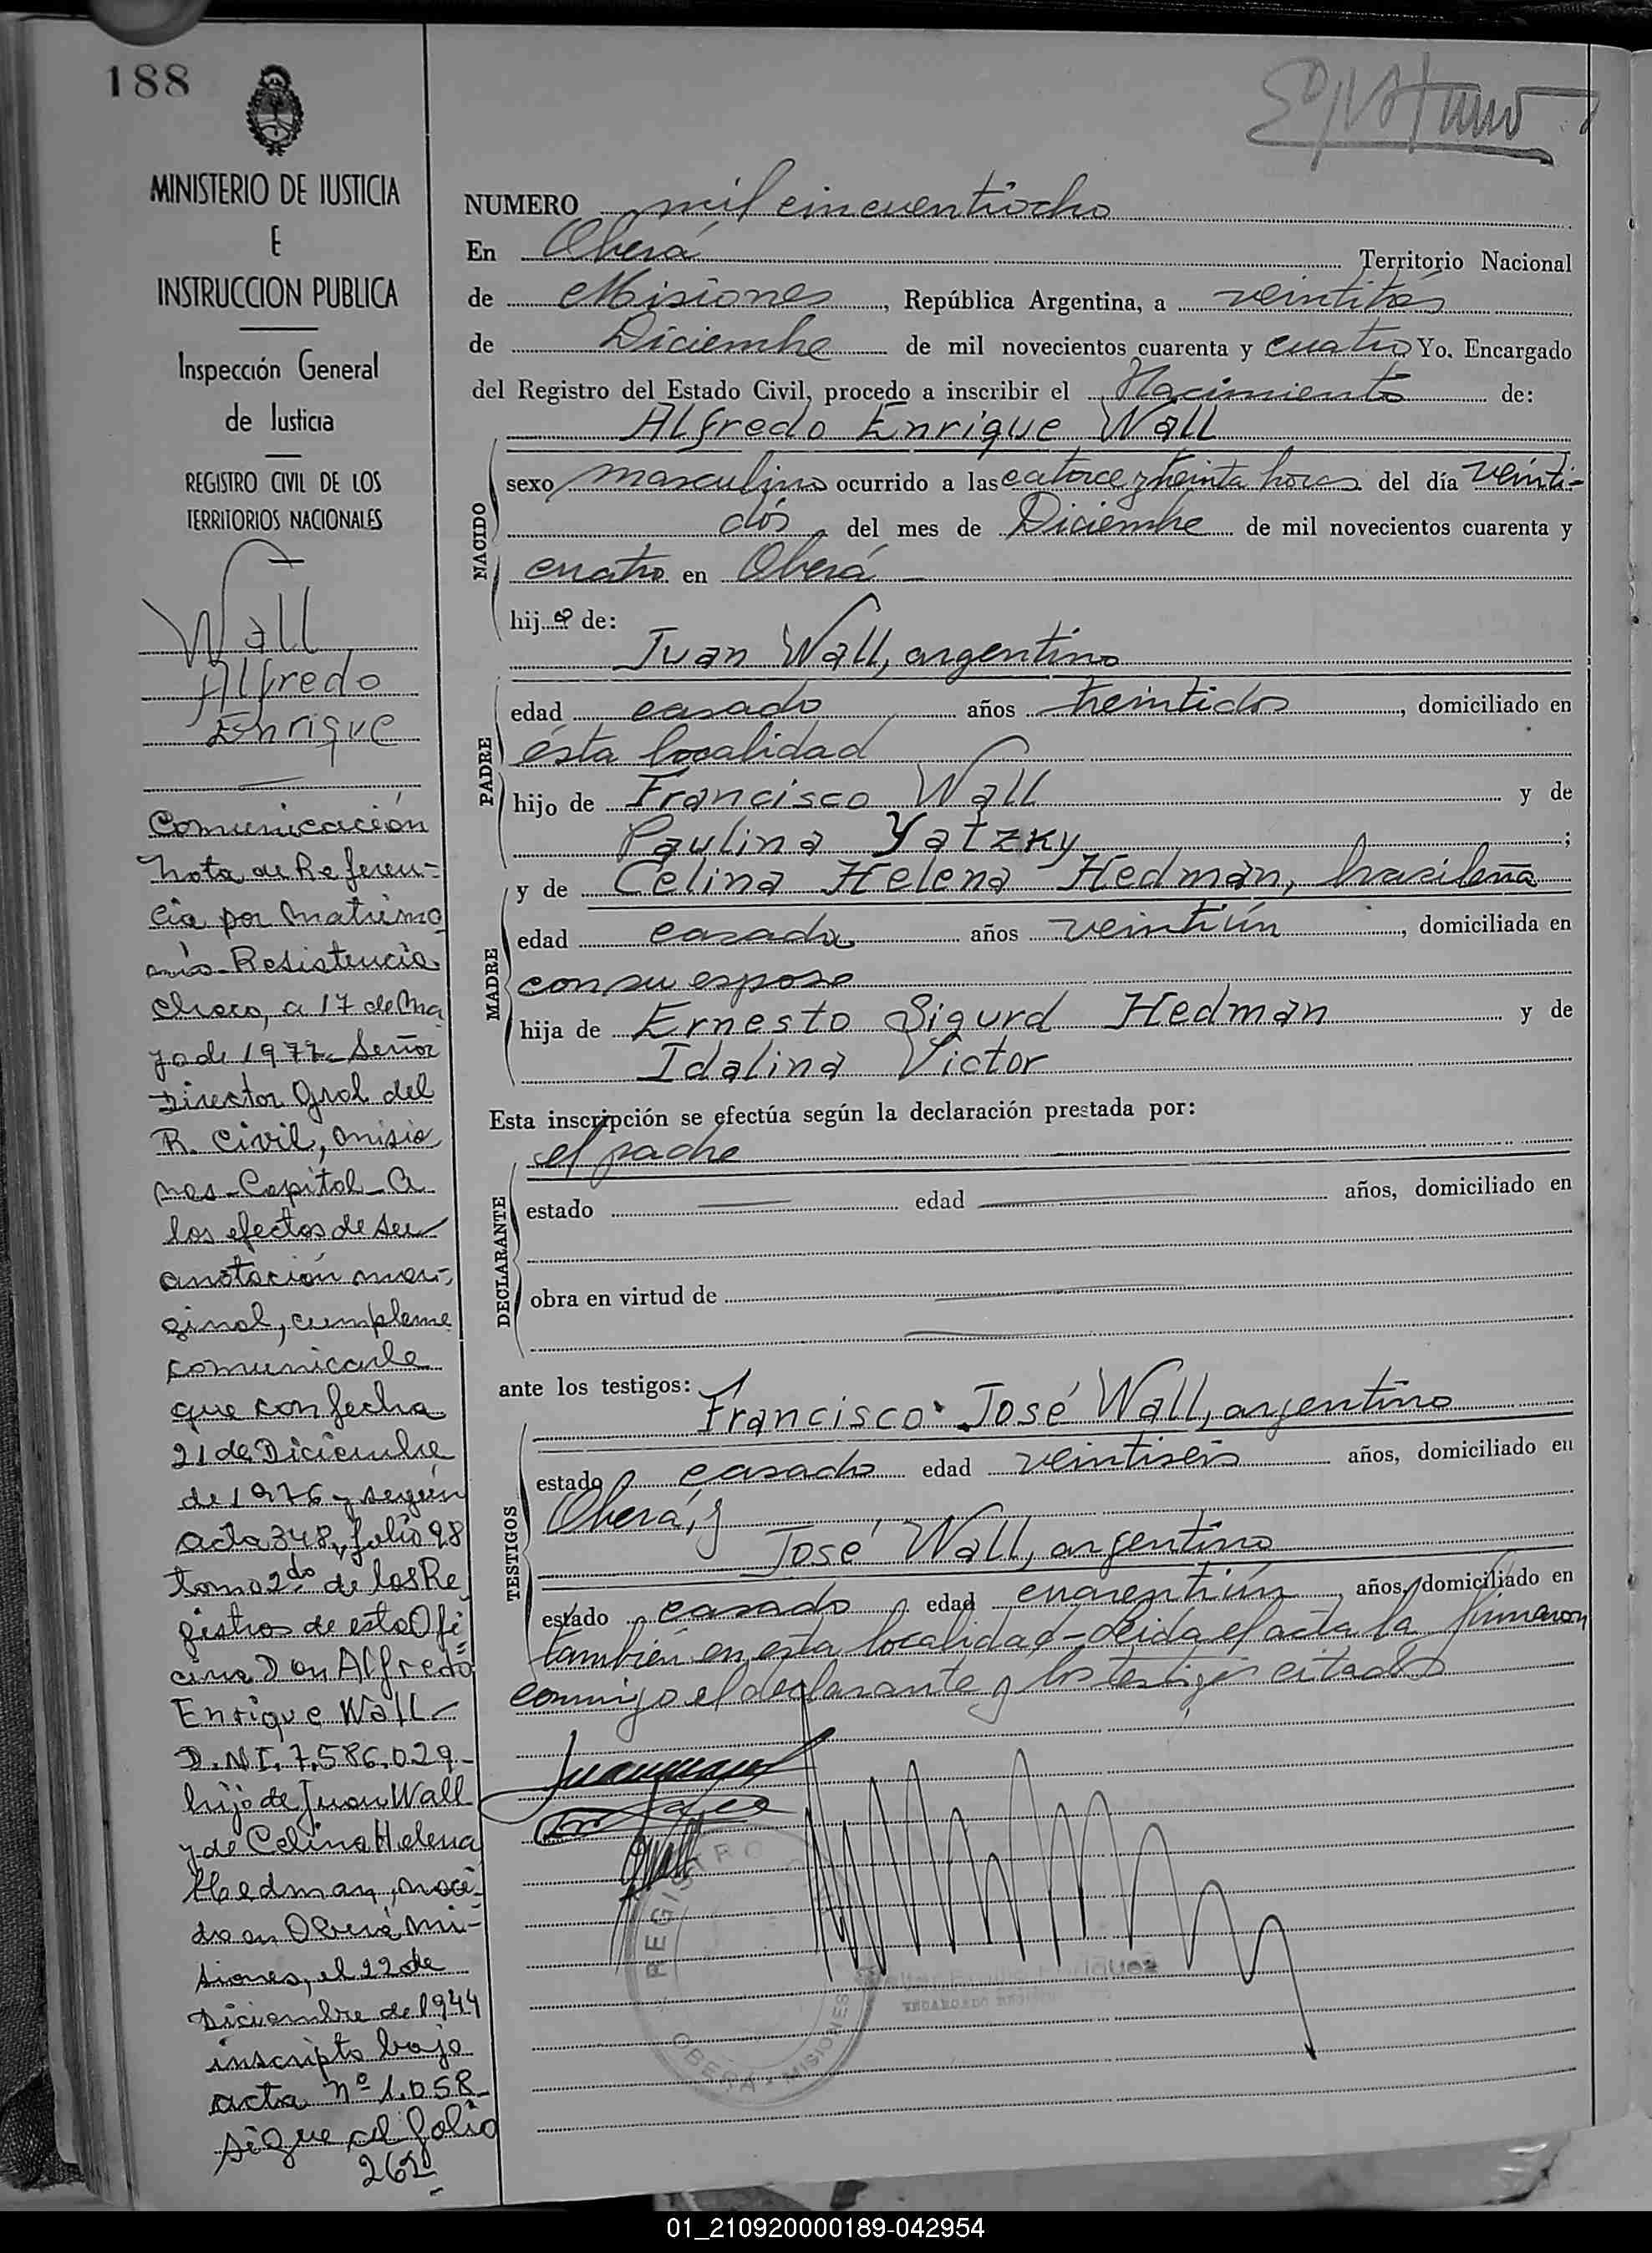 188
MINISTERIO DE JUSTICIA
E
INSTRUCCION PUBLICA
Inspección General
de Justicia
REGISTRO CIVIL DE LOS
TERRITORIOS NACIONALES
Wall
Alfredo
Enrique
Comunicación
Nota de Referen-
cia por Matrimo
nio-Resistencia
Chaco, a 17 de Ma
yo de 1977- Señor
Director Gral del
R. Civil, Misio
nes-Capital-A
los efectos de su
anotación mar-
ginal, cumpleme
comunicarle
que con fecha
21 de Diciembre
de 1976 y según
acta 348, folio 98
tomo 2do de los Re
gistros de esta Ofi
cina Don Alfredo
Enrique Wall-
D.N.I. 7.586.029-
hijo de Juan Wall
y de Celina Helena
Hedman, naci-
do en Oberá Mi-
siones, el 22 de
Diciembre de 1944
inscripto bajo
acta nº 1.058-
sigue al folio
262-
NUMERO mil cincuentiocho
En Oberá Territorio Nacional
de Misiones, República Argentina, a veintitrés
de Diciembre de mil novecientos cuarenta y cuatro Yo. Encargado
del Registro del Estado Civil, procedo a inscribir el Nacimiento de:
Alfredo Enrique Wall
NACIDO
sexo masculino ocurrido a las catorce y treinta horas del día veinti-
dós, del mes de Diciembre de mil novecientos cuarenta y
cuatro en Oberá
hijo de:
Juan Wall, argentino
PADRE
edad casado años treintidos, domiciliado en
ésta localidad
hijo de Francisco Wall y de
Paulina Yatzky;
MADRE
y de Celina Helena Hedman, brasileña
edad casada años veintiún, domiciliada en
con su esposo
hija de Ernesto Sigurd Hedman y de
Idalina Victor
Esta inscripción se efectúa según la declaración prestada por:
el padre
DECLARANTE
estado edad años, domiciliado en
obra en virtud de
ante los testigos:
Francisco José Wall, argentino
TESTIGOS
estado casado edad veintiseis años, domiciliado en
Oberá, y
José Wall, argentino
estado casado edad cuarentiún, años, domiciliado en
también en esta localidad-Leida el acta la firmaron
conmigo el declarante y los testigos citados
REGISTRO
OBERA - MISIONES
01_210920000189-042954